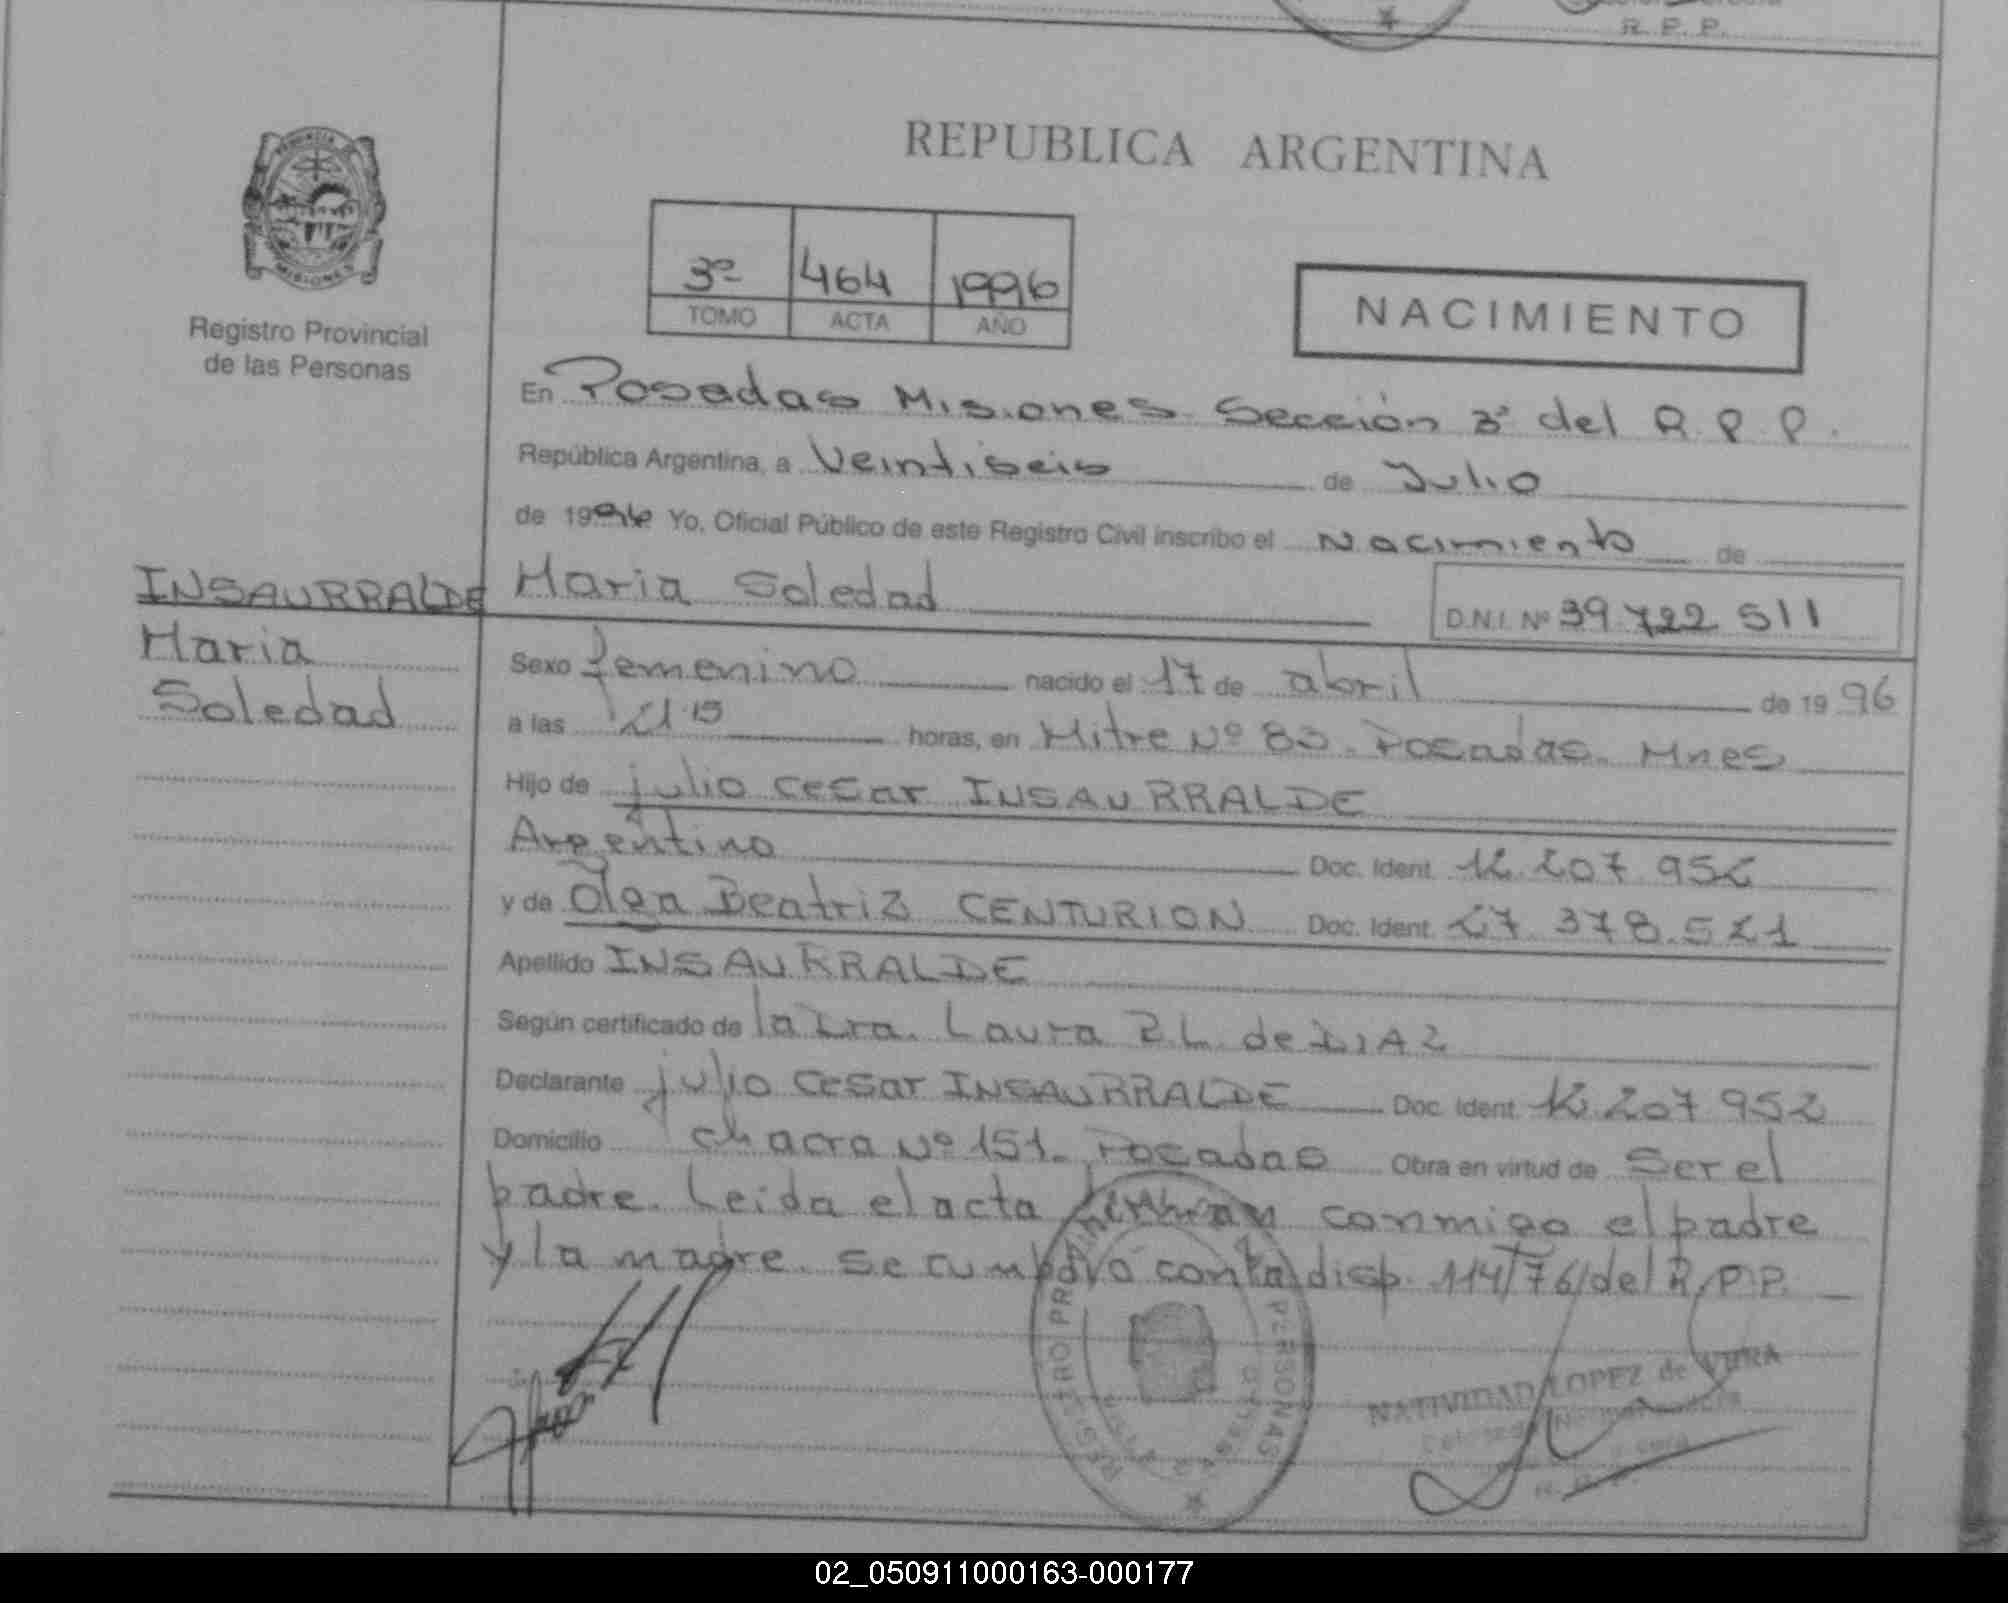 R. P. P.
PROVINCIA
MISIONES
Registro Provincial
de las Personas
REPUBLICA ARGENTINA
3º 464 1996
TOMO ACTA AÑO
NACIMIENTO
En Posadas Misiones Sección 3ª del R. P. P.
República Argentina, a Veintiseis de Julio
de 1996 Yo, Oficial Público de este Registro Civil inscribo el Nacimiento de
INSAURRALDE Maria Soledad D.N.I. Nº 39 722 511
Maria
Soledad
Sexo femenino nacido el 17 de abril de 19 96
a las 21 15 horas, en Mitre Nº 83. Posadas. Mnes
Hijo de julio cesar INSAURRALDE
Argentino Doc. Ident. 12 207 952
y de Olga Beatriz CENTURION Doc. Ident. 27 378.521
Apellido INSAURRALDE
Según certificado de la Dra. Laura Z L de DIAZ
Declarante julio cesar INSAURRALDE Doc. Ident. 12 207 952
Domicilio chacra Nº 151. Posadas Obra en virtud de Ser el
padre. Leida el acta firman conmigo el padre
y la madre. se cumplió con la disp. 114/76/del R.P.P.
REGISTRO PROVINCIAL PERSONAS
NATIVIDAD LOPEZ de VERA
02_050911000163-000177